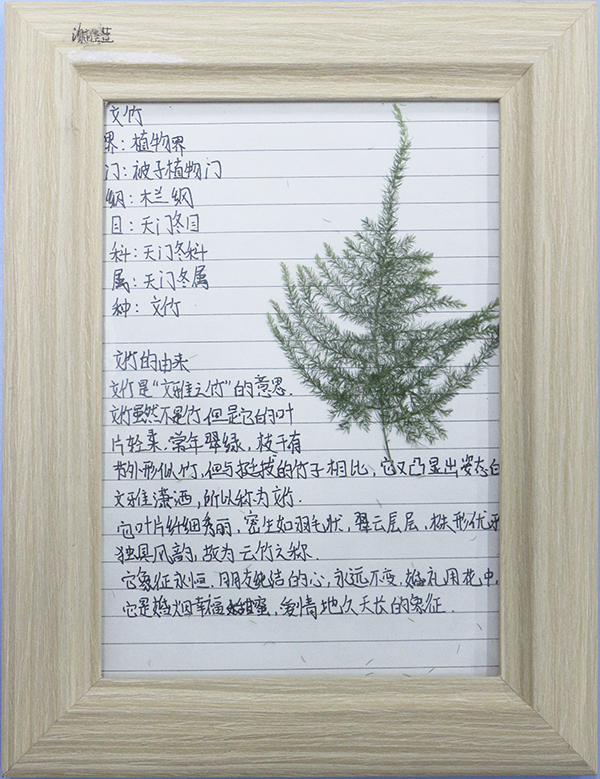 文竹
界：植物界
门：被子植物门
纲：木兰纲
目：天门冬目
科：天门冬科
属：天门冬属
种：文竹
文竹的由来
文竹是“文雅之竹”的意思.
文竹虽然不是竹,但是它的叶
片轻柔,常年翠绿,枝干有
节外形似竹,但与挺拔的竹子相比,它又凸显出姿态的
文雅潇洒,所以称为文竹.
它叶片纤细秀丽,密生如羽毛状,翠云层层,株形优雅
独具风韵,故为云竹之称.
它象征永恒,朋友纯洁的心,永远不变,婚礼用花中,
它是婚姻幸福甜蜜,爱情地久天长的象征.